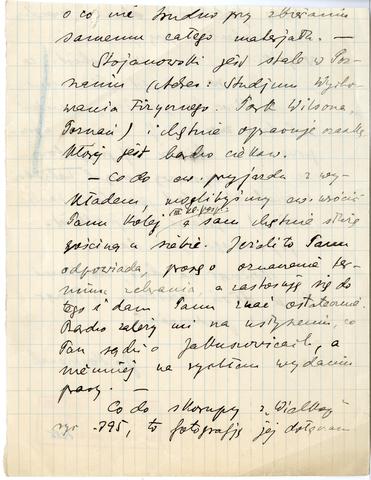 o co, nie trudno przy zbieraniu
samemu całego materjału. —
Stojanowski jest stale w Poz-
naniu (Adres: Studjum Wycho-
wania Fizycznego. Park Wilsona,
Poznań) i chętnie opracuje czaszkę,
której jest bardzo ciekaw.
— Co do ew. przyjazdu z wy-
kładem, moglibyśmy ew. zwrócić
Panu Kolej III kl. posp. a sam chętnie służę
gościną u siebie. Jeżeli to Panu
odpowiada, proszę o oznaczenie ter-
minu zebrania a zastosuję się do
tego i dam Panu znać ostatecznie.
Bardzo zależy mi na usłyszeniu, co
Pan sądzi o Jakuszowicach, a
niemniej na rychłem wydaniu
pracy. —
Co do skorupy z "Wielkiej
ryc. 795, to fotografję jej